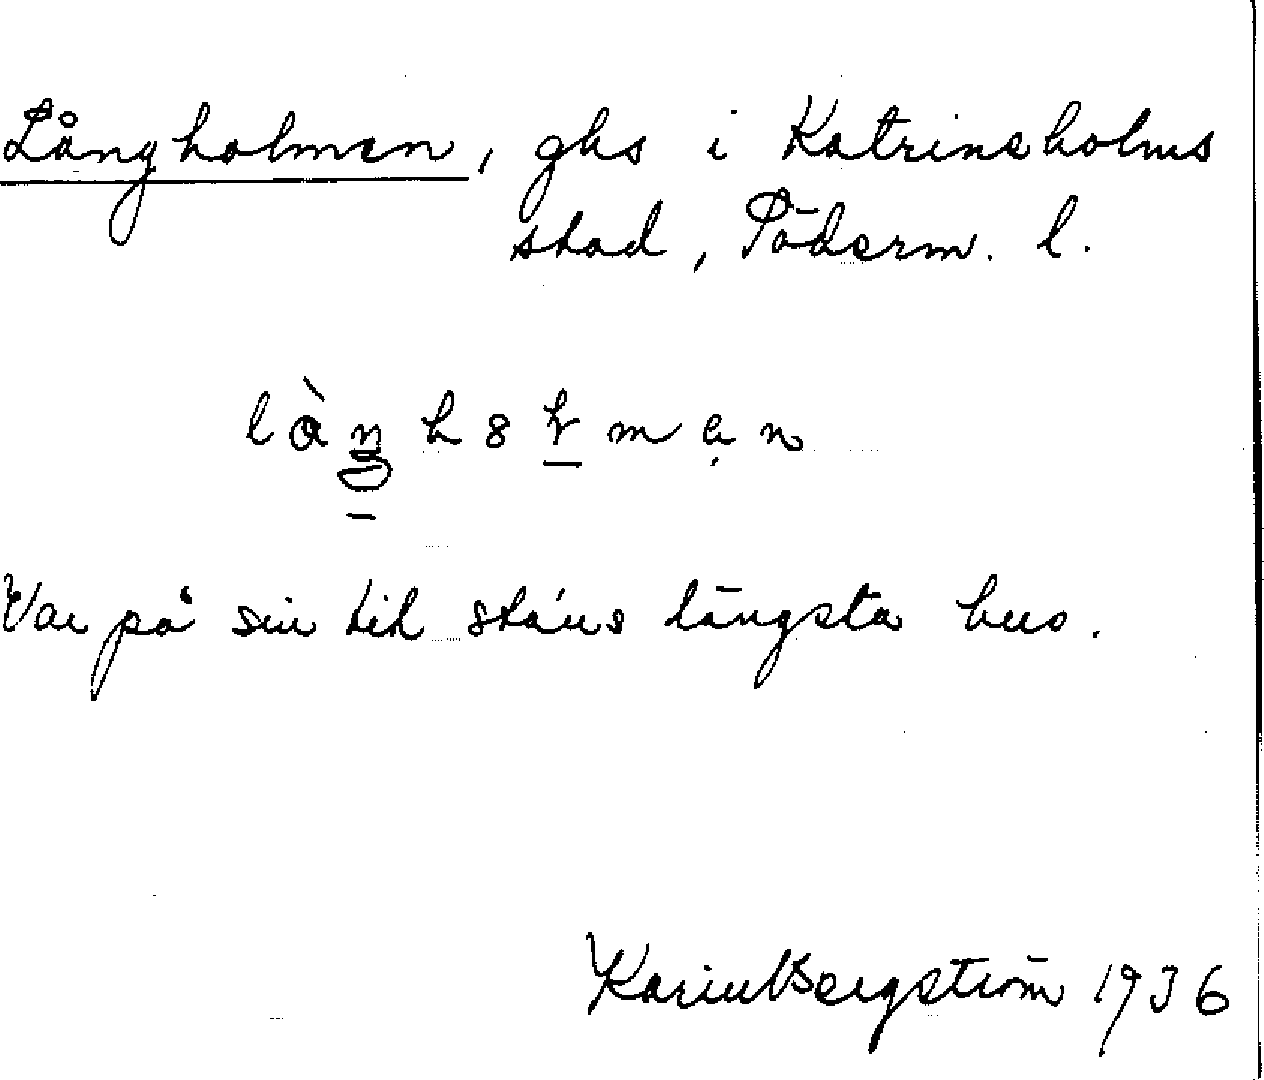 Långholmen, ghs i Katrineholms
stad, Söderm. l.
Var på sin tid stans längsta hus.
Karin Bergström 1936